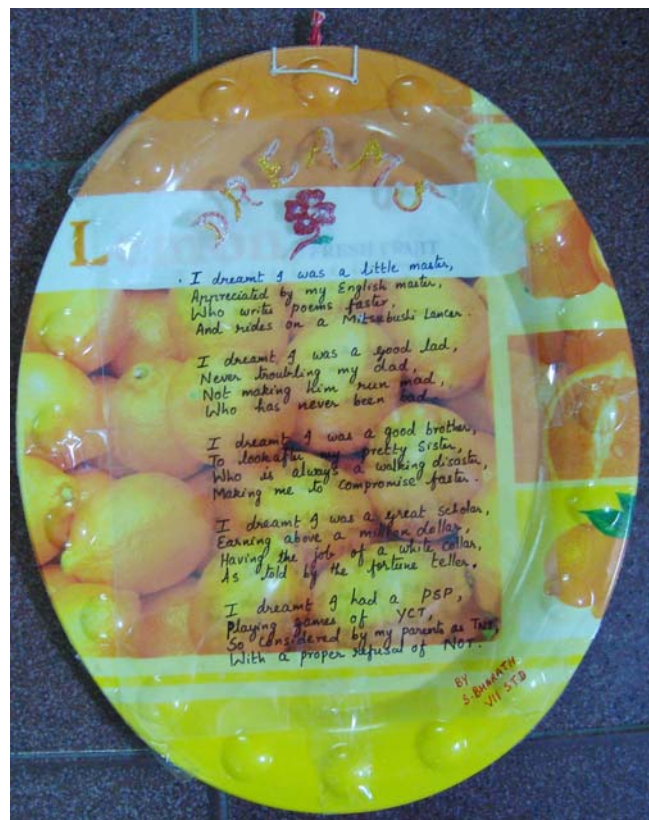 DREAMS
Lemon
FRESH FRUIT
I dreamt I was a little master,
Appreciated by my English master,
Who writes poems faster,
And rides on a Mitsubushi Lancer.
I dreamt I was a good lad,
Never troubling my dad,
Not making him run mad,
Who has never been bad.
I dreamt I was a good brother,
To look after my pretty Sister,
Who is always a walking disaster,
Making me to compromise faster.
I dreamt I was a great scholar,
Earning above a million dollar,
Having the job of a white collar,
As told by the fortune teller.
I dreamt I had a PSP,
Playing games of YCT,
So considered by my parents as TNT,
With a proper refusal of NOT.
BY
S. BHARATH
VII STD